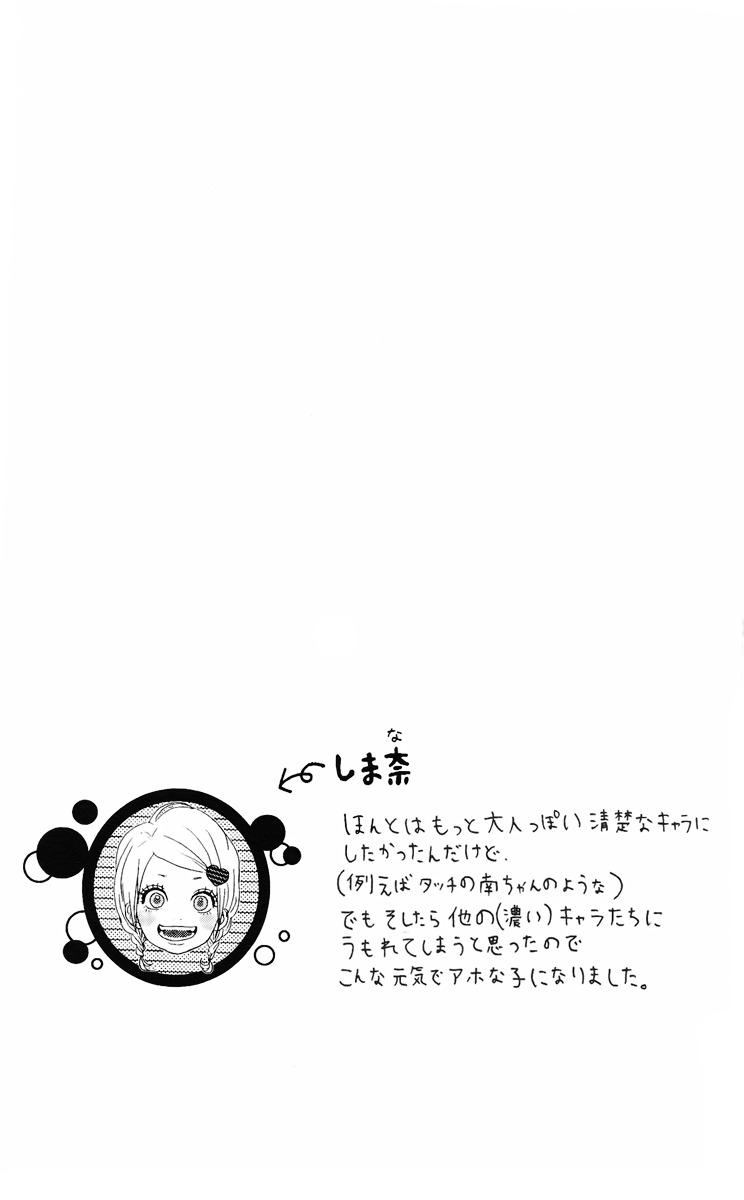 な
しま奈
ほんとはもっと大人っぽい清楚なキャラに
したかったんだけど、
(例えばタッチの南ちゃんのような)
でもそしたら他の(濃い)キャラたちに
うもれてしまうと思ったので
こんな元気でアホな子になりました。